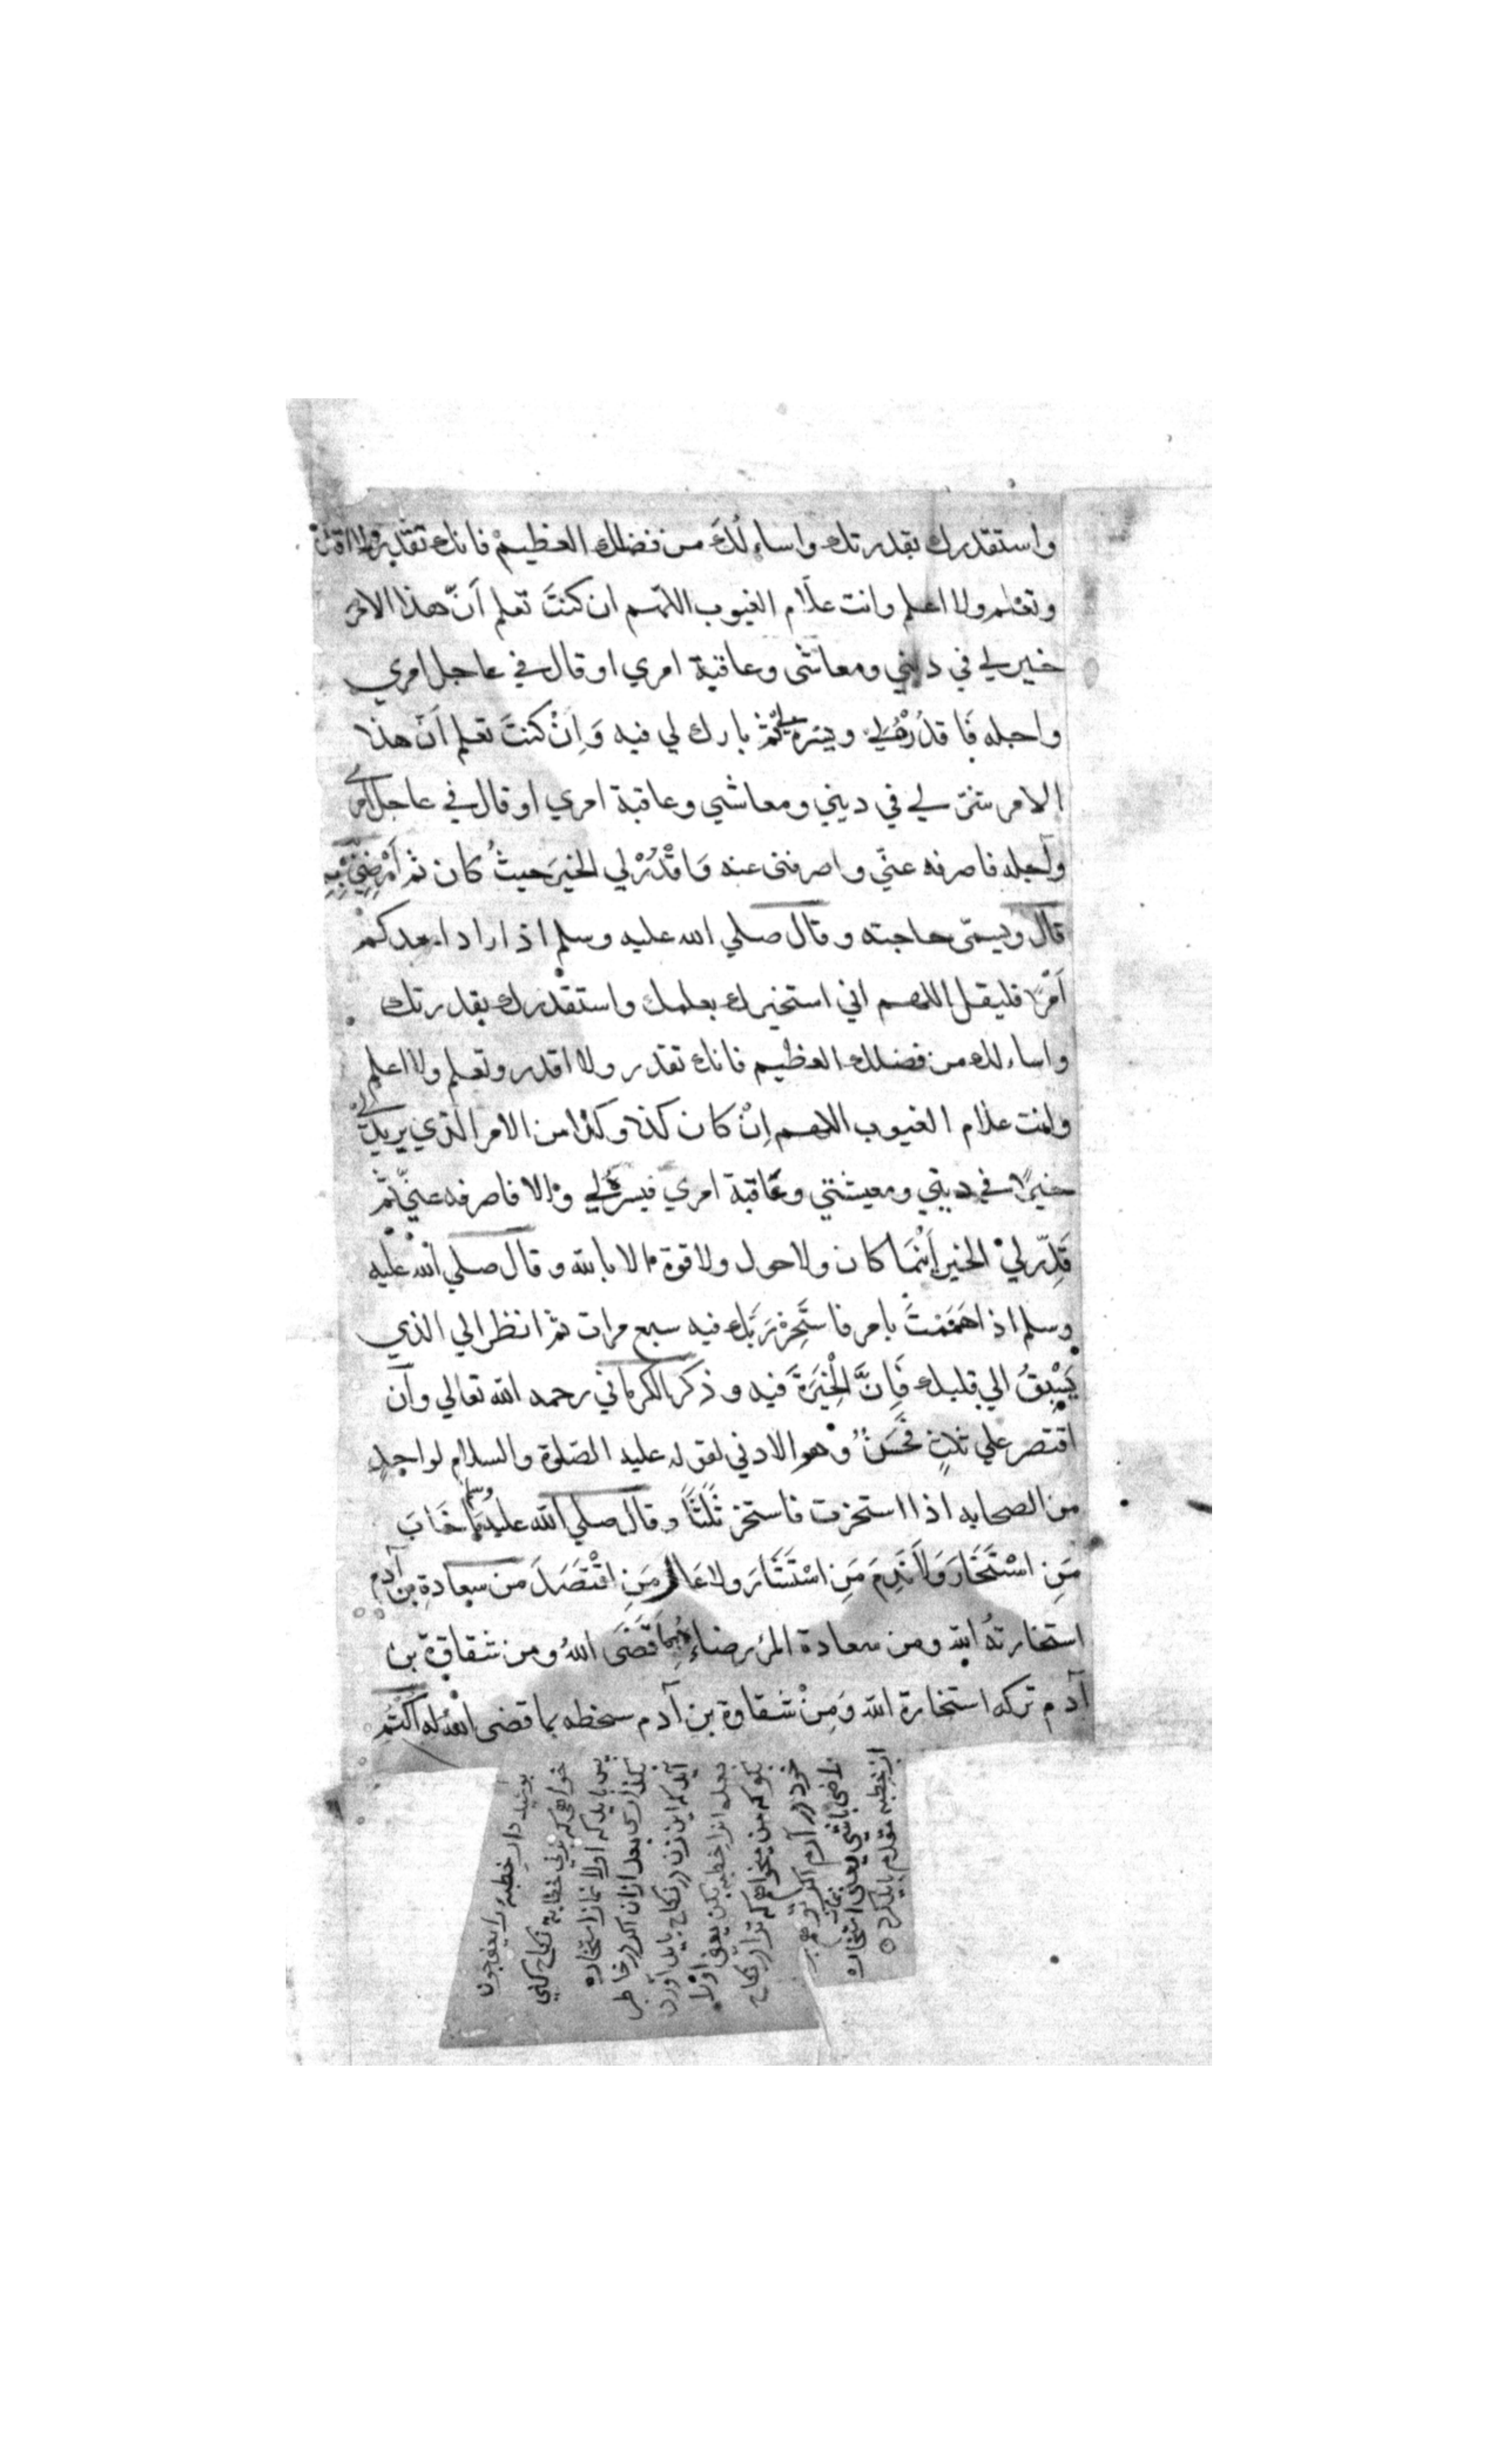 واستقدرك بقدرتك واساءلُكَ من فضلك العظيمْ فانك تقدر ولا اقدر
وتعْلم ولا اعلم وانت علّام الغيوب اللّهم ان كنتَ تعلم اَنّ هذا الامر
خير لي في ديني ومعاشى وعاقبة امري او قال في عاجل امري
واجله فَاقدُرْهُ لي ويسّره لي ثمّ بارك لي فيه وَاِنْ كنتَ تعلم اَنّ هذا
الامر شرّ لي في ديني ومعاشي وعاقبة امري او قال في عاجل امري
وآجله فاصرفه عنّي واصرفنى عنه وَاقْدُرْ لي الخيرَ حيثُ كان ثم اَرْضِنِيْ بِهِ
قال ويسمّى حاجته وقال صلي الله عليه وسلم اذا اراد احدكمْ
اَمْرًا فليقل اللهم اني استخيرك بعلمك واستقْدرك بقدرتك
واساءلك من فضلك العظيم فانك تقدر ولا اقدر وتعلم ولا اعلم
وانت علام الغيوب اللهم اِنْ كان كذا وكذا من الامر الّذي يريد
خيرًا في ديني ومعيشتي وعَاقبة امري فيسّرهُ لي وَالا فاصرفه عنّي ثمّ
قَدِّر ليْ الخير اَيْنَمَا كان ولا حول ولا قوة الا بالله وقال صلي الله عليه
وسلم اذا هَمَمْتَ بامر فاستَخِرْ رَبَّك فيه سبع مرات ثم انظر الي الذي
يَسْبِقُ الي قلبك فَاِنَّ الْخِيَرَةَ فيه وذكر الكرماني رحمه الله تعالي وان
اقتصر علي ثلاثٍ فحَسَنٌ وَهو الادني لقوله عليه الصّلوة والسلام لواحدٍ
من الصحابه اذا استخرت فاستخر ثَلٰثًا وقال صلي الله عليه وسلم مَا خَابَ
مَنِ اسْتَخَارَ وَلَا نَدِمَ مَنِ اسْتَشَارَ ولا عَالَ مَنِ اقْتَصَدَ من سعادةِ بن آدم
استخارتهُ الله ومن سعادة المرء رضاءُهُ بِمَا قَضَى اللهُ ومن شقاوة بن
آدم تركه استخارة الله وَمِنْ شقاوة بن آدم سخطه بما قضى الله له اُكْتُمْ
پوشیده دار خِطْبَة را یعنی چون
خواهی که بزنی خطابة نکاح کنی
پس باید که اولا نماز استخاره
بگذاری بعد ازان اگر در خاطر
آید که این زن در نکاح باید آورد
بعد ازا خطبه بکن یعنی اوّلا
بگو که من میخواهم که ترا در نکاح
خود در آرم اگر تو هم
راضی باشی یعنی نماز استخاره
از خِطبه مقدم باید کرد